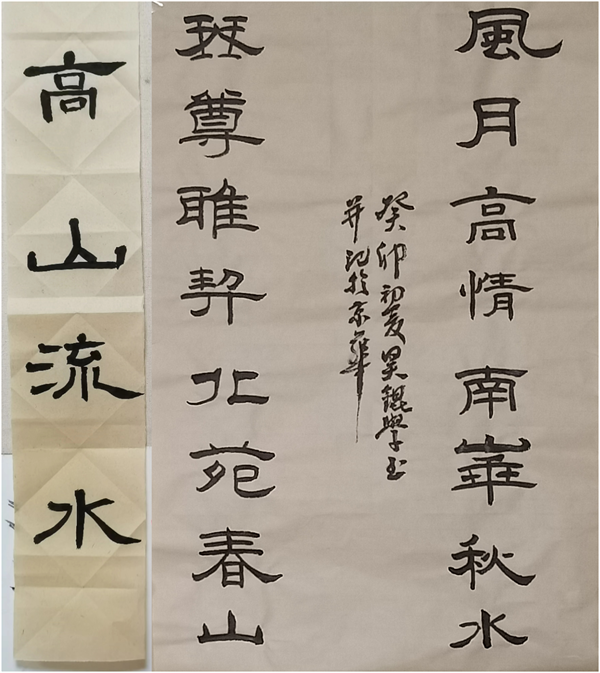 風月高情南華秋水
癸卯初夏昊錕學玉
并記於京華
琴尊雅契北苑春山
高山流水